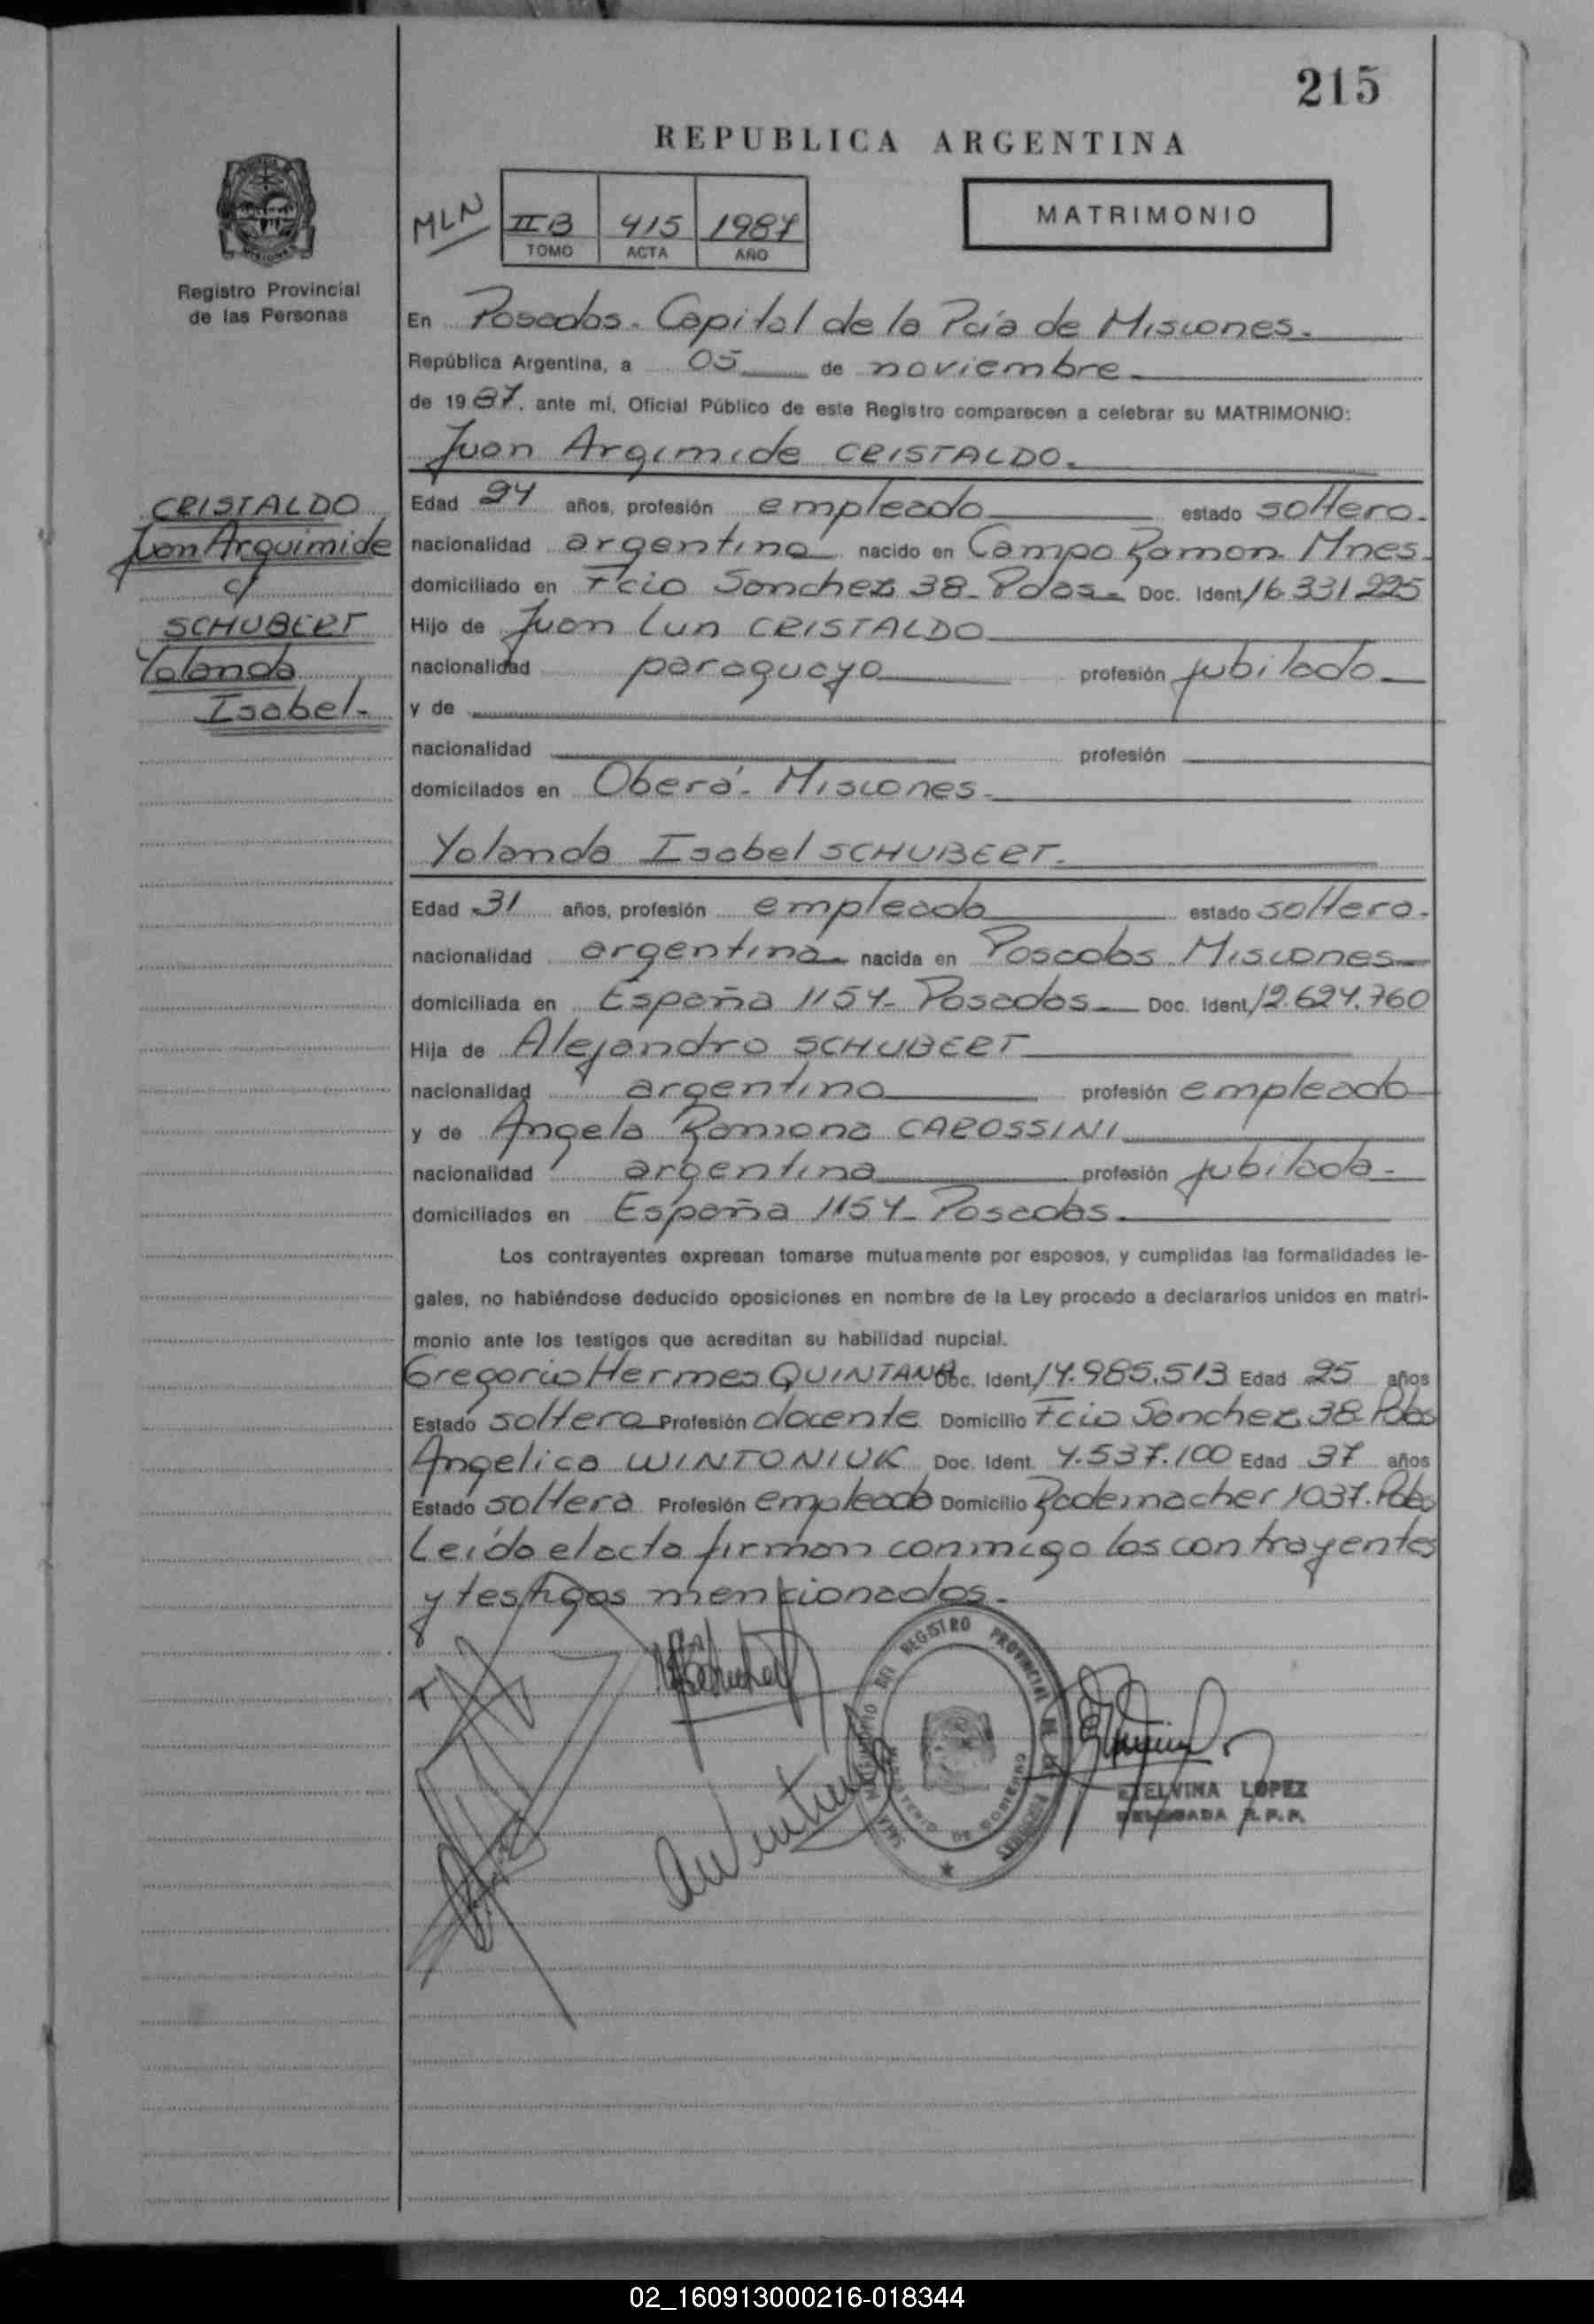 215
REPUBLICA ARGENTINA
MLN
IIB 415 1987
TOMO ACTA AÑO
MATRIMONIO
Registro Provincial
de las Personas
En Posadas. Capital de la Pcia de Misiones.
República Argentina, a 05 de noviembre
de 1987, ante mí, Oficial Público de este Registro comparecen a celebrar su MATRIMONIO:
Juan Argimide CRISTALDO.
CRISTALDO
Juan Arquimide
c/
SCHUBERT
Yolanda
Isabel.
Edad 24 años, profesión empleado estado soltero.
nacionalidad argentino nacido en Campo Ramon Mnes.
domiciliado en Fcio Sanchez 38. Pdas. Doc. Ident. 16.331.225
Hijo de Juan Lun CRISTALDO
nacionalidad paraguayo profesión jubilado
y de
nacionalidad profesión
domicilados en Oberá. Misiones.
Yolanda Isabel SCHUBERT.
Edad 31 años, profesión empleada estado soltera.
nacionalidad argentina nacida en Posadas Misiones
domiciliada en España 1154. Posadas. Doc. Ident. 12.624.760
Hija de Alejandro SCHUBERT
nacionalidad argentino profesión empleado
y de Angela Ramona CAROSSINI
nacionalidad argentina profesión jubilada.
domiciliados en España 1154. Posadas.
Los contrayentes expresan tomarse mutuamente por esposos, y cumplidas las formalidades le-
gales, no habiéndose deducido oposiciones en nombre de la Ley procedo a declararlos unidos en matri-
monio ante los testigos que acreditan su habilidad nupcial.
Gregorio Hermes QUINTANA Doc. Ident. 14.985.513 Edad 25 años
Estado soltero Profesión docente Domicilio Fcio Sanchez 38 Pdas
Angelica WINTONIUK Doc. Ident. 4.537.100 Edad 37 años
Estado soltera Profesión empleada Domicilio Rademacher 1037. Pdas
Leída el acta firman conmigo los contrayentes
y testigos mencionados.
REGISTRO PROVINCIAL DE LAS PERSONAS
MINISTERIO DE GOBIERNO
ETELVINA LOPEZ
DELEGADA R.P.P.
02_160913000216-018344